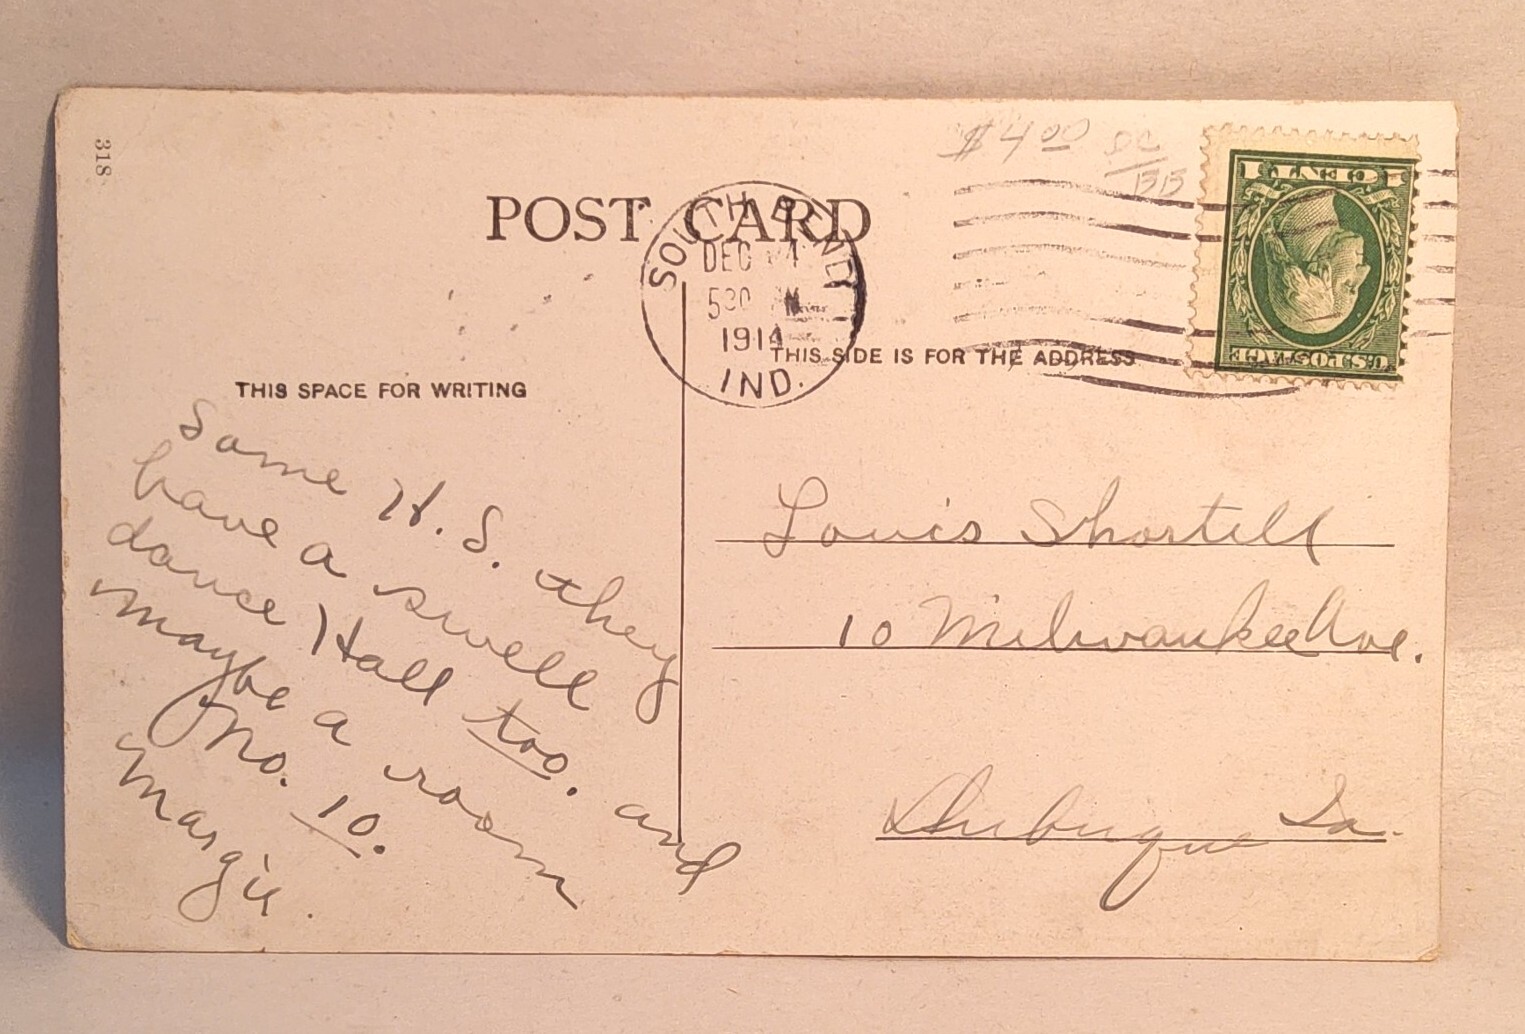 318
POST CARD
$4.00
DC
1313
SOUTH BEND
DEC 14
530 M
1914
IND.
1 CENT 1
U.S.POSTAGE
THIS SPACE FOR WRITING
THIS SIDE IS FOR THE ADDRESS
Some H.S. they
have a swell
dance Hall too. and
maybe a room
No. 10.
Margie.
Louis Shortell
10 Milwaukee Ave.
Dubuque Ia.